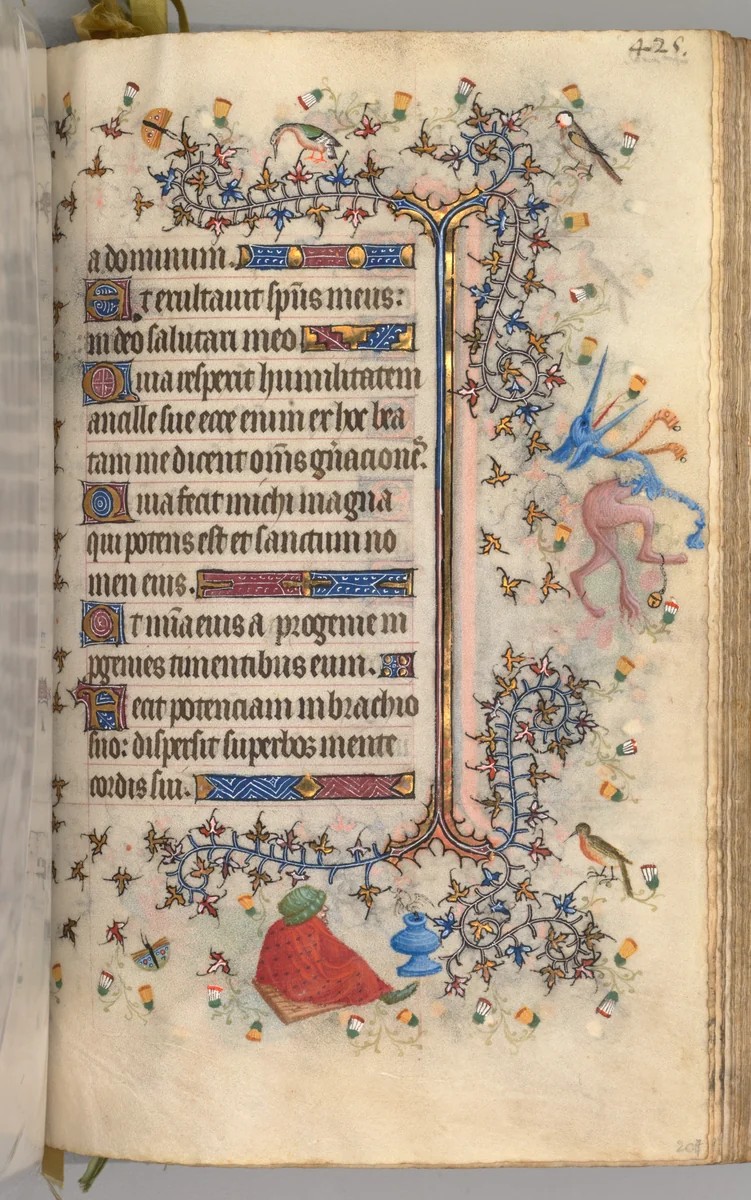 425.
a dominum.
Et exultauit sp̄us meus:
in deo salutari meo
Quia respexit humilitatem
ancille sue ecce enim ex hoc bea
tam me dicent om̄s gñacioneᷤ.
Quia fecit michi magna
qui potens est et sanctum no
men eius.
Et mīa eius a progenie in
pgenies timentibus eum.
Fecit potenciam in brachio
suo: dispersit superbos mente
cordis sui.